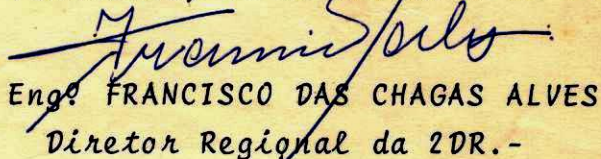 Engº FRANCISCO DAS CHAGAS ALVES
Diretor Regional da 2DR.-